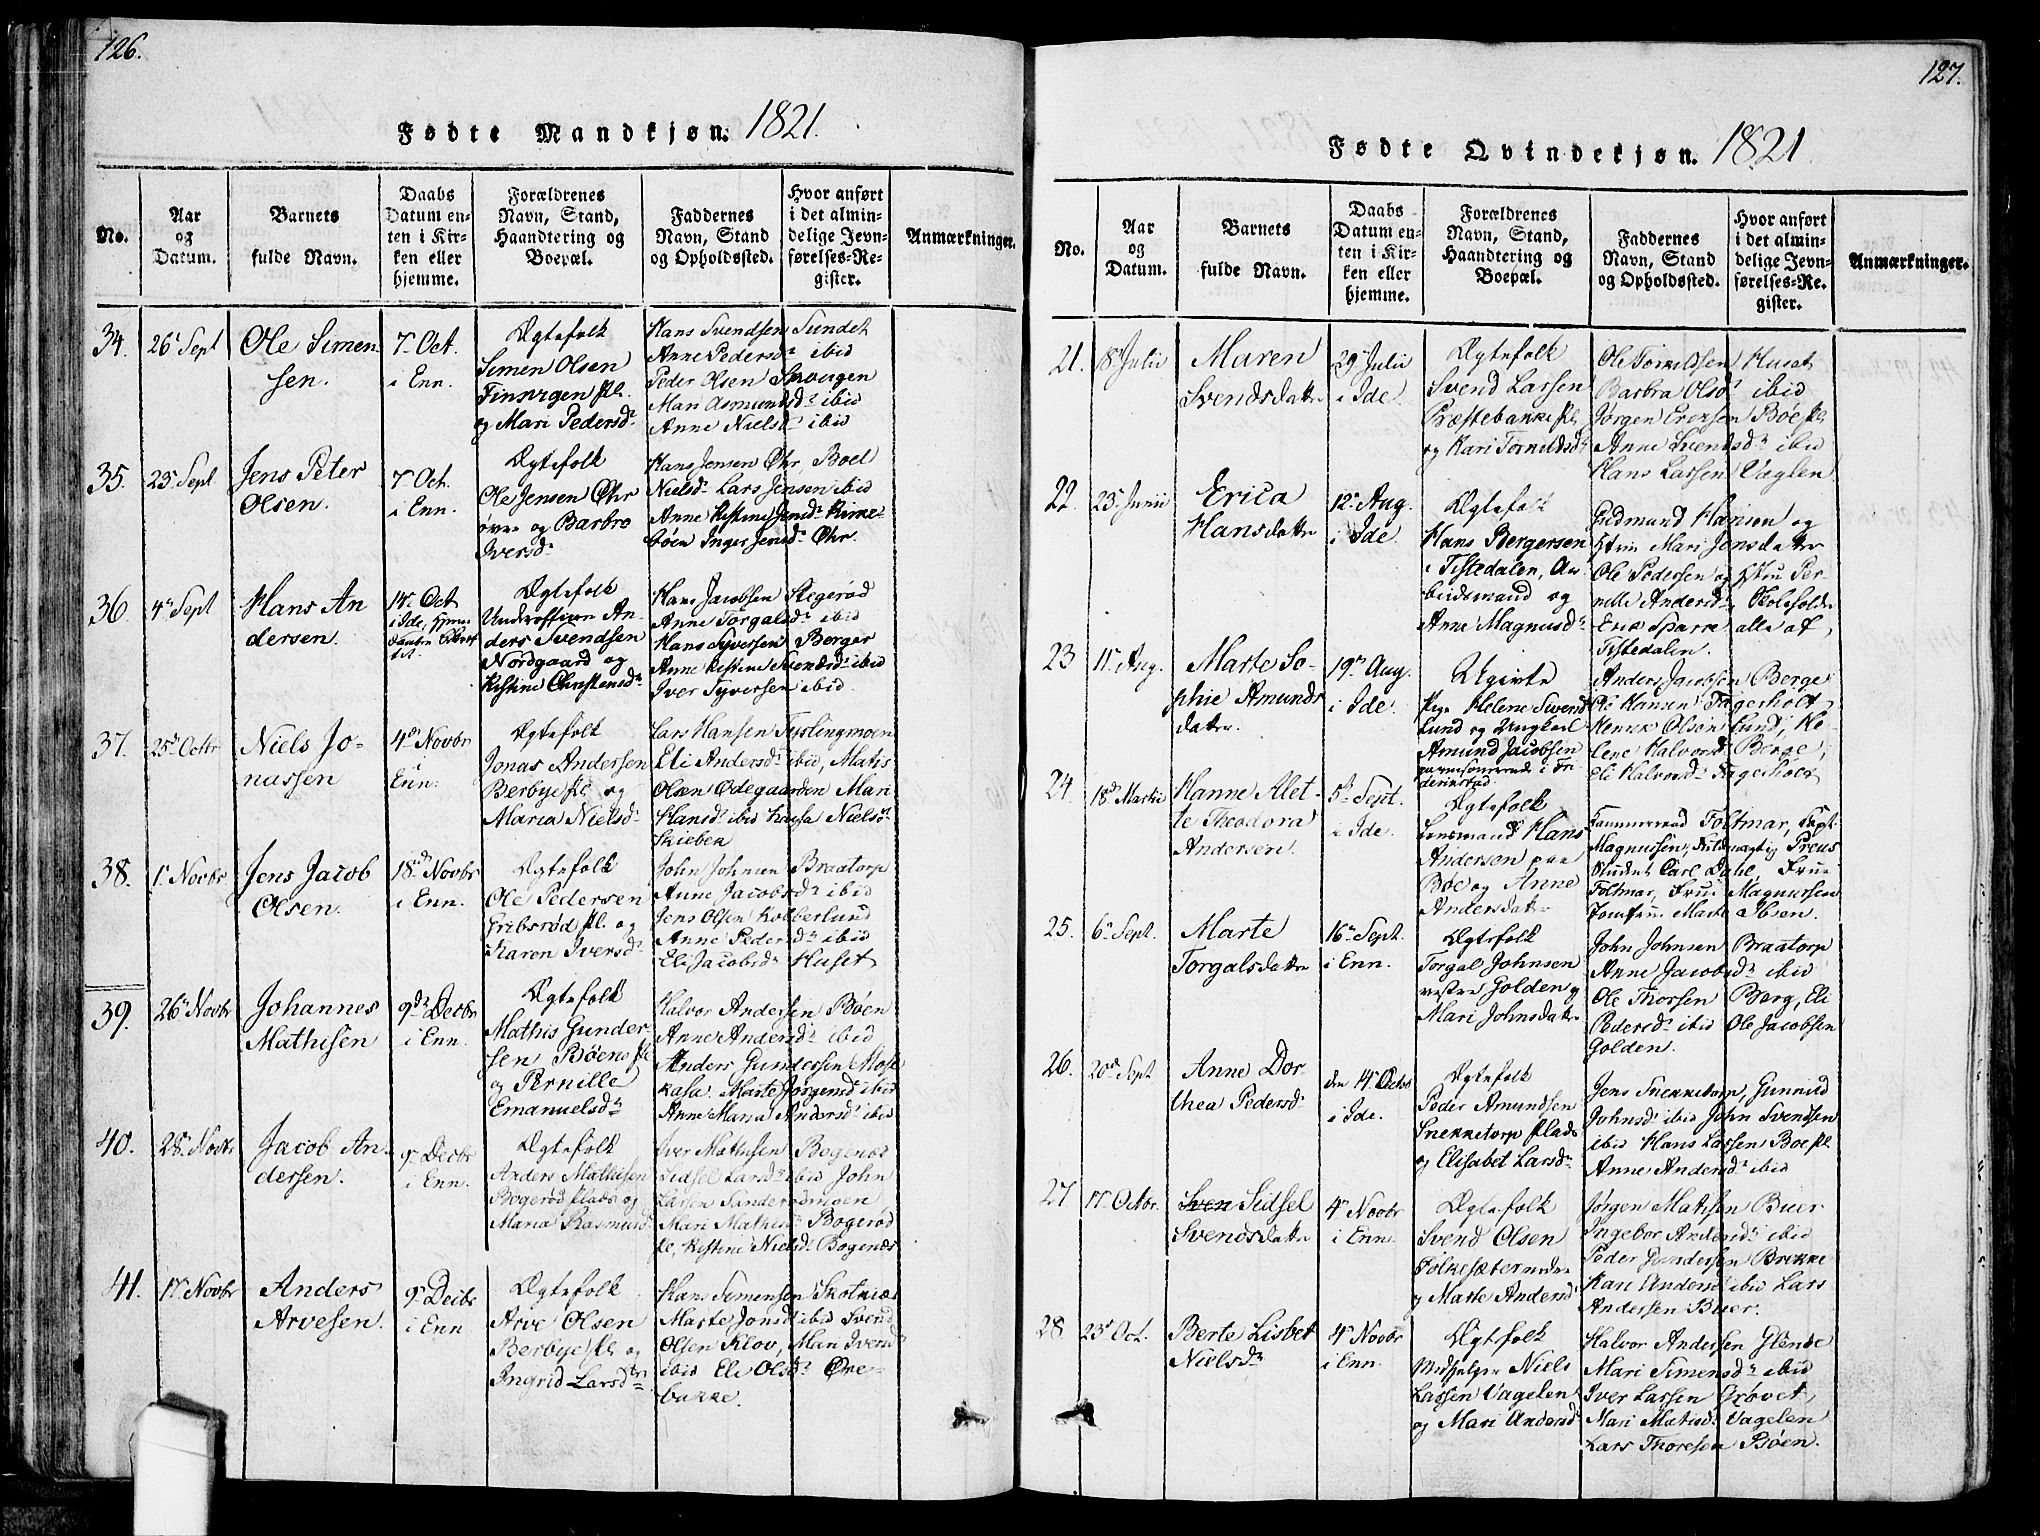 126.
Fødte Mandkjøn. 1821.
No.
Aar
og
Datum.
Barnets
fulde Navn.
Daabs
Datum en-
ten i Kir-
ken eller
hjemme.
Forældrenes
Navn, Stand,
Haandtering og
Boepæl.
Faddernes
Navn, Stand
og Opholdssted.
Hvor anført
i det almin-
delige Jevn-
førelses-Re-
gister.
Anmærkninger.
34.
26 Sept
Ole Simen
sen.
7 Oct.
i Enn.
Ægtefolk
Simen Olsen
Pl.
og Mari Pedersd.
Hans Svendsen Sundet
Anne Pedersdr ibid
Peder Olsen
Mari Asmundsdr ibid
Anne Nielsdr ibid
35.
23 Sept
Jens Peter
Olsen.
7 Oct.
i Enn.
Ægtefolk
Ole Jensen Øhr
øvre og Barbro
Iversdr
Hans Jensen Øhr, Boel
Nielsdr Lars Jensen ibid
Anne Kistine Jensdr Kirke-
bøen Inger Jensdr Øhr.
36.
4 Sept
Hans An
dersen.
14 Oct
i Ide,
Ægtefolk
Underofficer An-
ders Svendsen
Nordgaard og
Kistine Christensdr
Hans Jacobsen Stegerød
Anne Torgalsdr ibid
Hans Syversen Berger
Anne Kistine Svendsdr ibid
Iver Syversen ibid.
37.
25 Octbr
Niels Jo-
nassen
4 Novbr
i
Enn.
Ægtefolk
Jonas Andersen
Berbye Pl. og
Maria Nielsd.
Lars Hansen Tislingmoen
Eli Andersdr ibid, Matis
Olsen Ødegaarden Mari
Hansdr ibid Kaisa Nielsdr
Skieben
38.
1 Novbr
Jens Jacob
Olsen.
18 Novbr
i Enn.
Ægtefolk
Ole Pedersen
Gribsrød Pl. og
Karen Iversd.
John Johnsen Braatorp
Anne Jacobsdr ibid
Jens Olsen Kolberlund
Anne Pedersdr ibid
Eli Jacobsdr Huset
39.
26 Novbr
Johannes
Mathisen
9d Decbr
i Enn.
Ægtefolk
Mathis Gunder-
sen, Bøens Pl
og Pernille
Emanuelsdr
Halvor Andersen Bøen
Anne Andersdr ibid
Anders Gundersen Mose
kasa. Marte Jørgensd ibid
Anne Maria Andersdr ibid
40.
28 Novbr
Jacob An-
dersen.
9 Decbr
i Enn.
Ægtefolk
Anders Mathisen
Bogerød Plads og
Maria Rasmusd
Iver Mathisen Bogenæs
Sidsel Larsdr ibid John
Larsen Sanderødningen
Mari Mathisdr Bogerød
Pl, Kistine Nielsdr Bogenæs
41.
17 Novbr
Anders
Arvesen.
9 Decbr
i Enn
Ægtefolk
Arve Olsen
Berbye Pl og
Ingrid Larsdtr
Hans Simensen Skotnæs
Marte Jonsd ibid Svend
Olsen Klov, Mari Iversd
ibid Eli Olsdr Øre-
bakke.
127.
Fødte Qvindekjøn. 1821
No.
Aar
og
Datum.
Barnets
fulde Navn.
Daabs
Datum en-
ten i Kir-
ken eller
hjemme.
Forældrenes
Navn, Stand,
Haandtering og
Boepæl.
Faddernes
Navn, Stand
og Opholdssted.
Hvor anført
i det almin-
delige Jevn-
førelses-Re-
gister.
Anmærkninger.
21.
18 Julii
Maren
Svendsdattr
29 Julii
i Ide.
Ægtefolk
Svend Larsen
Præstebakke Pl
og Kari Tornildsdr
Ole Tornildsen Huset
Barbra Olsdr ibid
Jørgen Ericsen Bøe Pl.
Anne Svendsdr ibid
Hans Larsen Vaglen
22.
23 Junii
Erica
Hansdattr
12 Aug.
i Ide
Ægtefolk
Hans Bergersen
i Tistedalen, Ar
beidsmand og
Anne Magnusdr
Gudmund Hansen og
Mari Jensdatter
Ole Pedersen og Per-
nelle Andersdr,
Erik Sparre alle af
Tistedalen.
23
11 Aug.
Marte So-
phie Amunds
dattr.
19 Aug.
i Ide.
Ugivte
Pige Helene Svend
Lund og Ungkarl
Amund Jacobsen
garnisonerende i Fri
derikstad
Anders Jacobsen Berge
Ole Hansen Fagerholt
Henrik Olsen Lund, He-
lene Halvorsd Berge,
Eli Halvorsdr Fagerholt
24.
18 Martii
Hanne Alet-
te Theodora
Andersen.
5 Sept.
i Ide.
Ægtefolk
Lensmand Hans
Andersen paa
Bøe og Anne
Andersdatr
Kammerraad Foltmar, Capt.
Magnussen, Fuldmægtig Preus
Student Carl Dahl, Frue
Foltmar, Frue Magnussen
Jomfrue Marte Ibsen.
25.
6 Sept.
Marte
Torgalsdattr
16 Sept.
i Enn.
Ægtefolk
Torgal Johnsen
vestre Golden og
Mari Johnsdattr
John Johnsen Braatorp
Anne Jacobsdr ibid
Ole Thorsen Berg, Eli
Pedersdr ibid Ole Jacobsen
Golden.
26.
20 Sept
Anne Dor-
thea Pedersdr
den 14 Octbr
i Ide.
Ægtefolk
Peder Amundsen
Snekketorp Plads
og Elisabet Larsdr
Jens Snekketorp, Gunnild
Johnsdr ibid John Svendsen
ibid Hans Larsen Boe Pl.
Anne Andersdr ibid
27.
17 Octbr.
Sven Sidsel
Svendsdattr
4 Novbr
i Enn.
Ægtefolk
Svend Olsen
Folkesæter nedre
og Marte Andersd
Jørgen Matisen Buer
Ingebor Andersdr ibid
Peder Gundersen Brekke
Kari Andersd ibid Lars
Andersen Buer.
28
23 Oct.
Berte Lisbet
Nielsdr
4 Novbr
i Enn.
Ægtefolk
Medhjelper Niels
Larsen Vagelen
og Mari Andersd
Halvor Andersen Glende
Mari Simensdr ibid
Iver Larsen Grøvet,
Mari Matisdr Vagelen
Lars Thoresen Bøen.